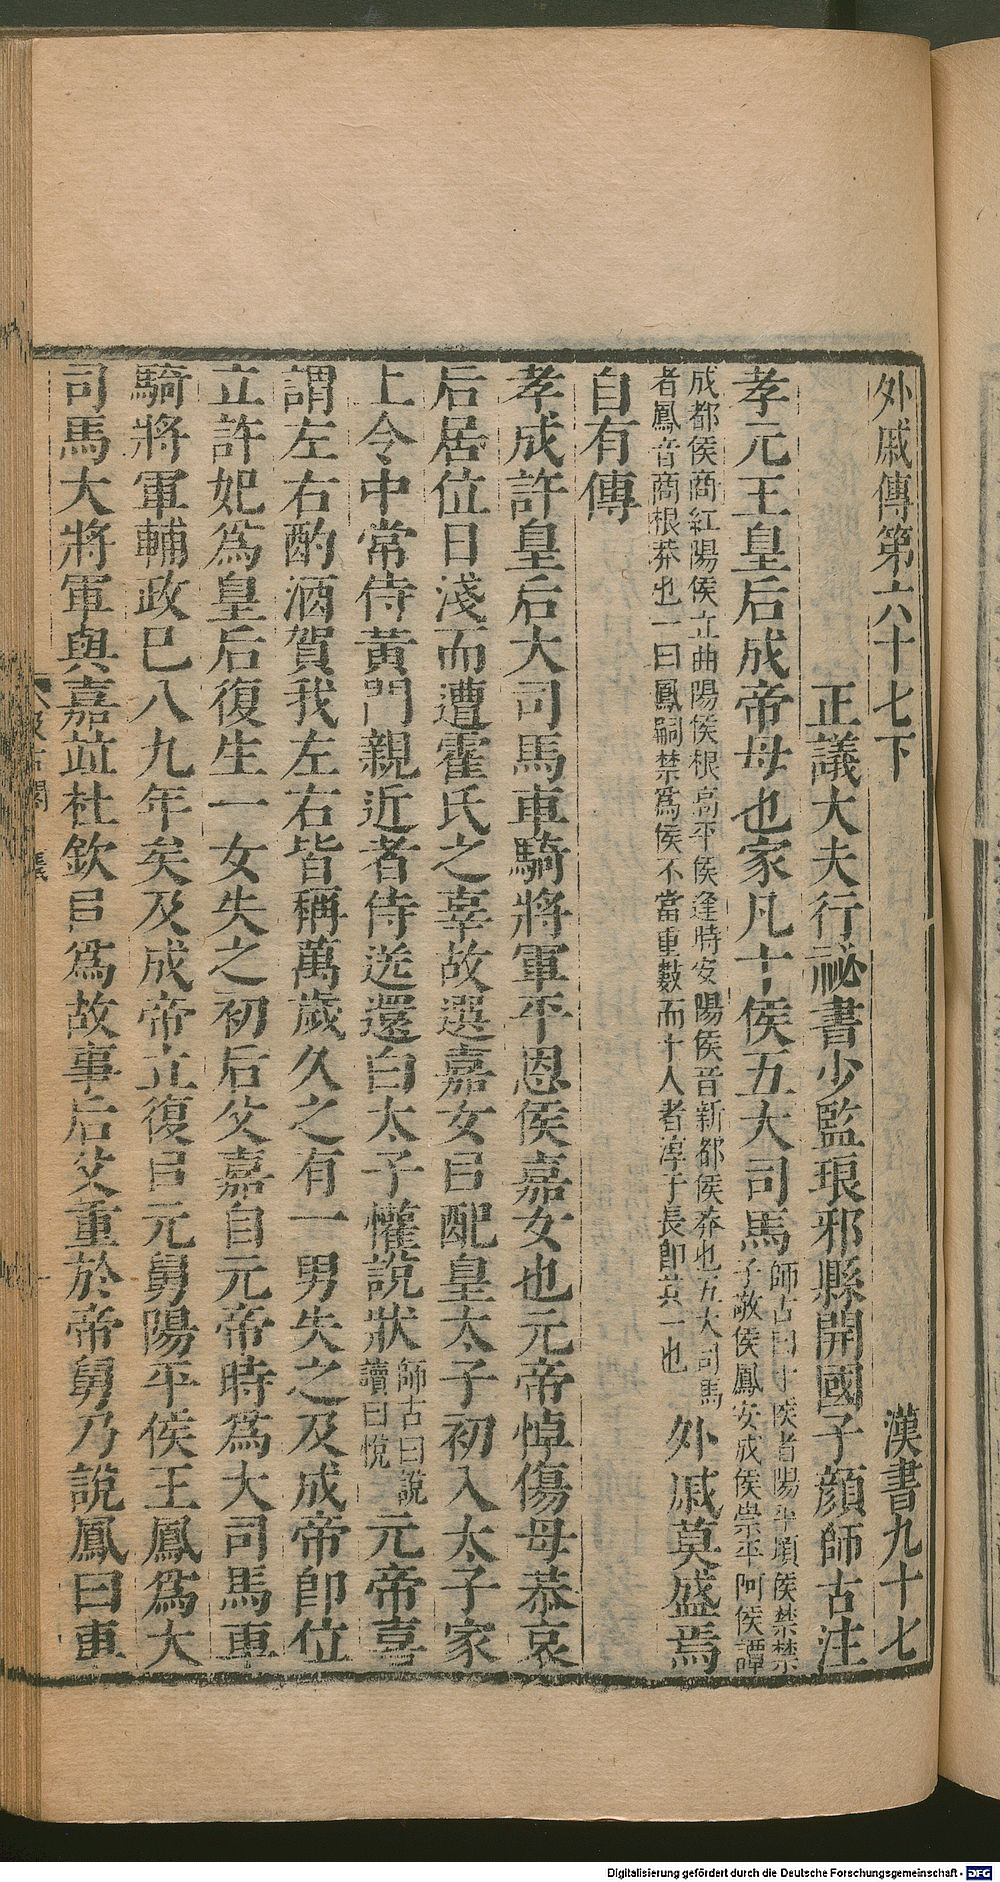 外戚傳第六十七下 漢書九十七
正議大夫行祕書少監琅邪縣開國子顏師古注
孝元王皇后成帝母也家凡十侯五大司馬師古曰十侯者陽平頃侯禁禁子敬侯鳳安成侯崇平阿侯譚
成都侯商紅陽侯立曲陽侯根高平侯逢時安陽侯音新都侯莽也五大司馬者鳳音商根莽也一曰鳳嗣禁爲侯不當重數而十人者淳于長卽其一也外戚莫盛焉
自有傳
孝成許皇后大司馬車騎將軍平恩侯嘉女也元帝悼傷母恭哀
后居位日淺而遭霍氏之辜故選嘉女㠯配皇太子初入太子家
上令中常侍黃門親近者侍送還白太子懽說狀師古曰說讀曰悅元帝喜
謂左右酌酒賀我左右皆稱萬歲久之有一男失之及成帝卽位
立許妃爲皇后復生一女失之初后父嘉自元帝時爲大司馬車
騎將軍輔政已八九年矣及成帝立復㠯元舅陽平侯王鳳爲大
司馬大將軍與嘉竝杜欽㠯爲故事后父重於帝舅乃說鳳曰車
汲古閣
Digitalisierung gefördert durch die Deutsche Forschungsgemeinschaft - DFG